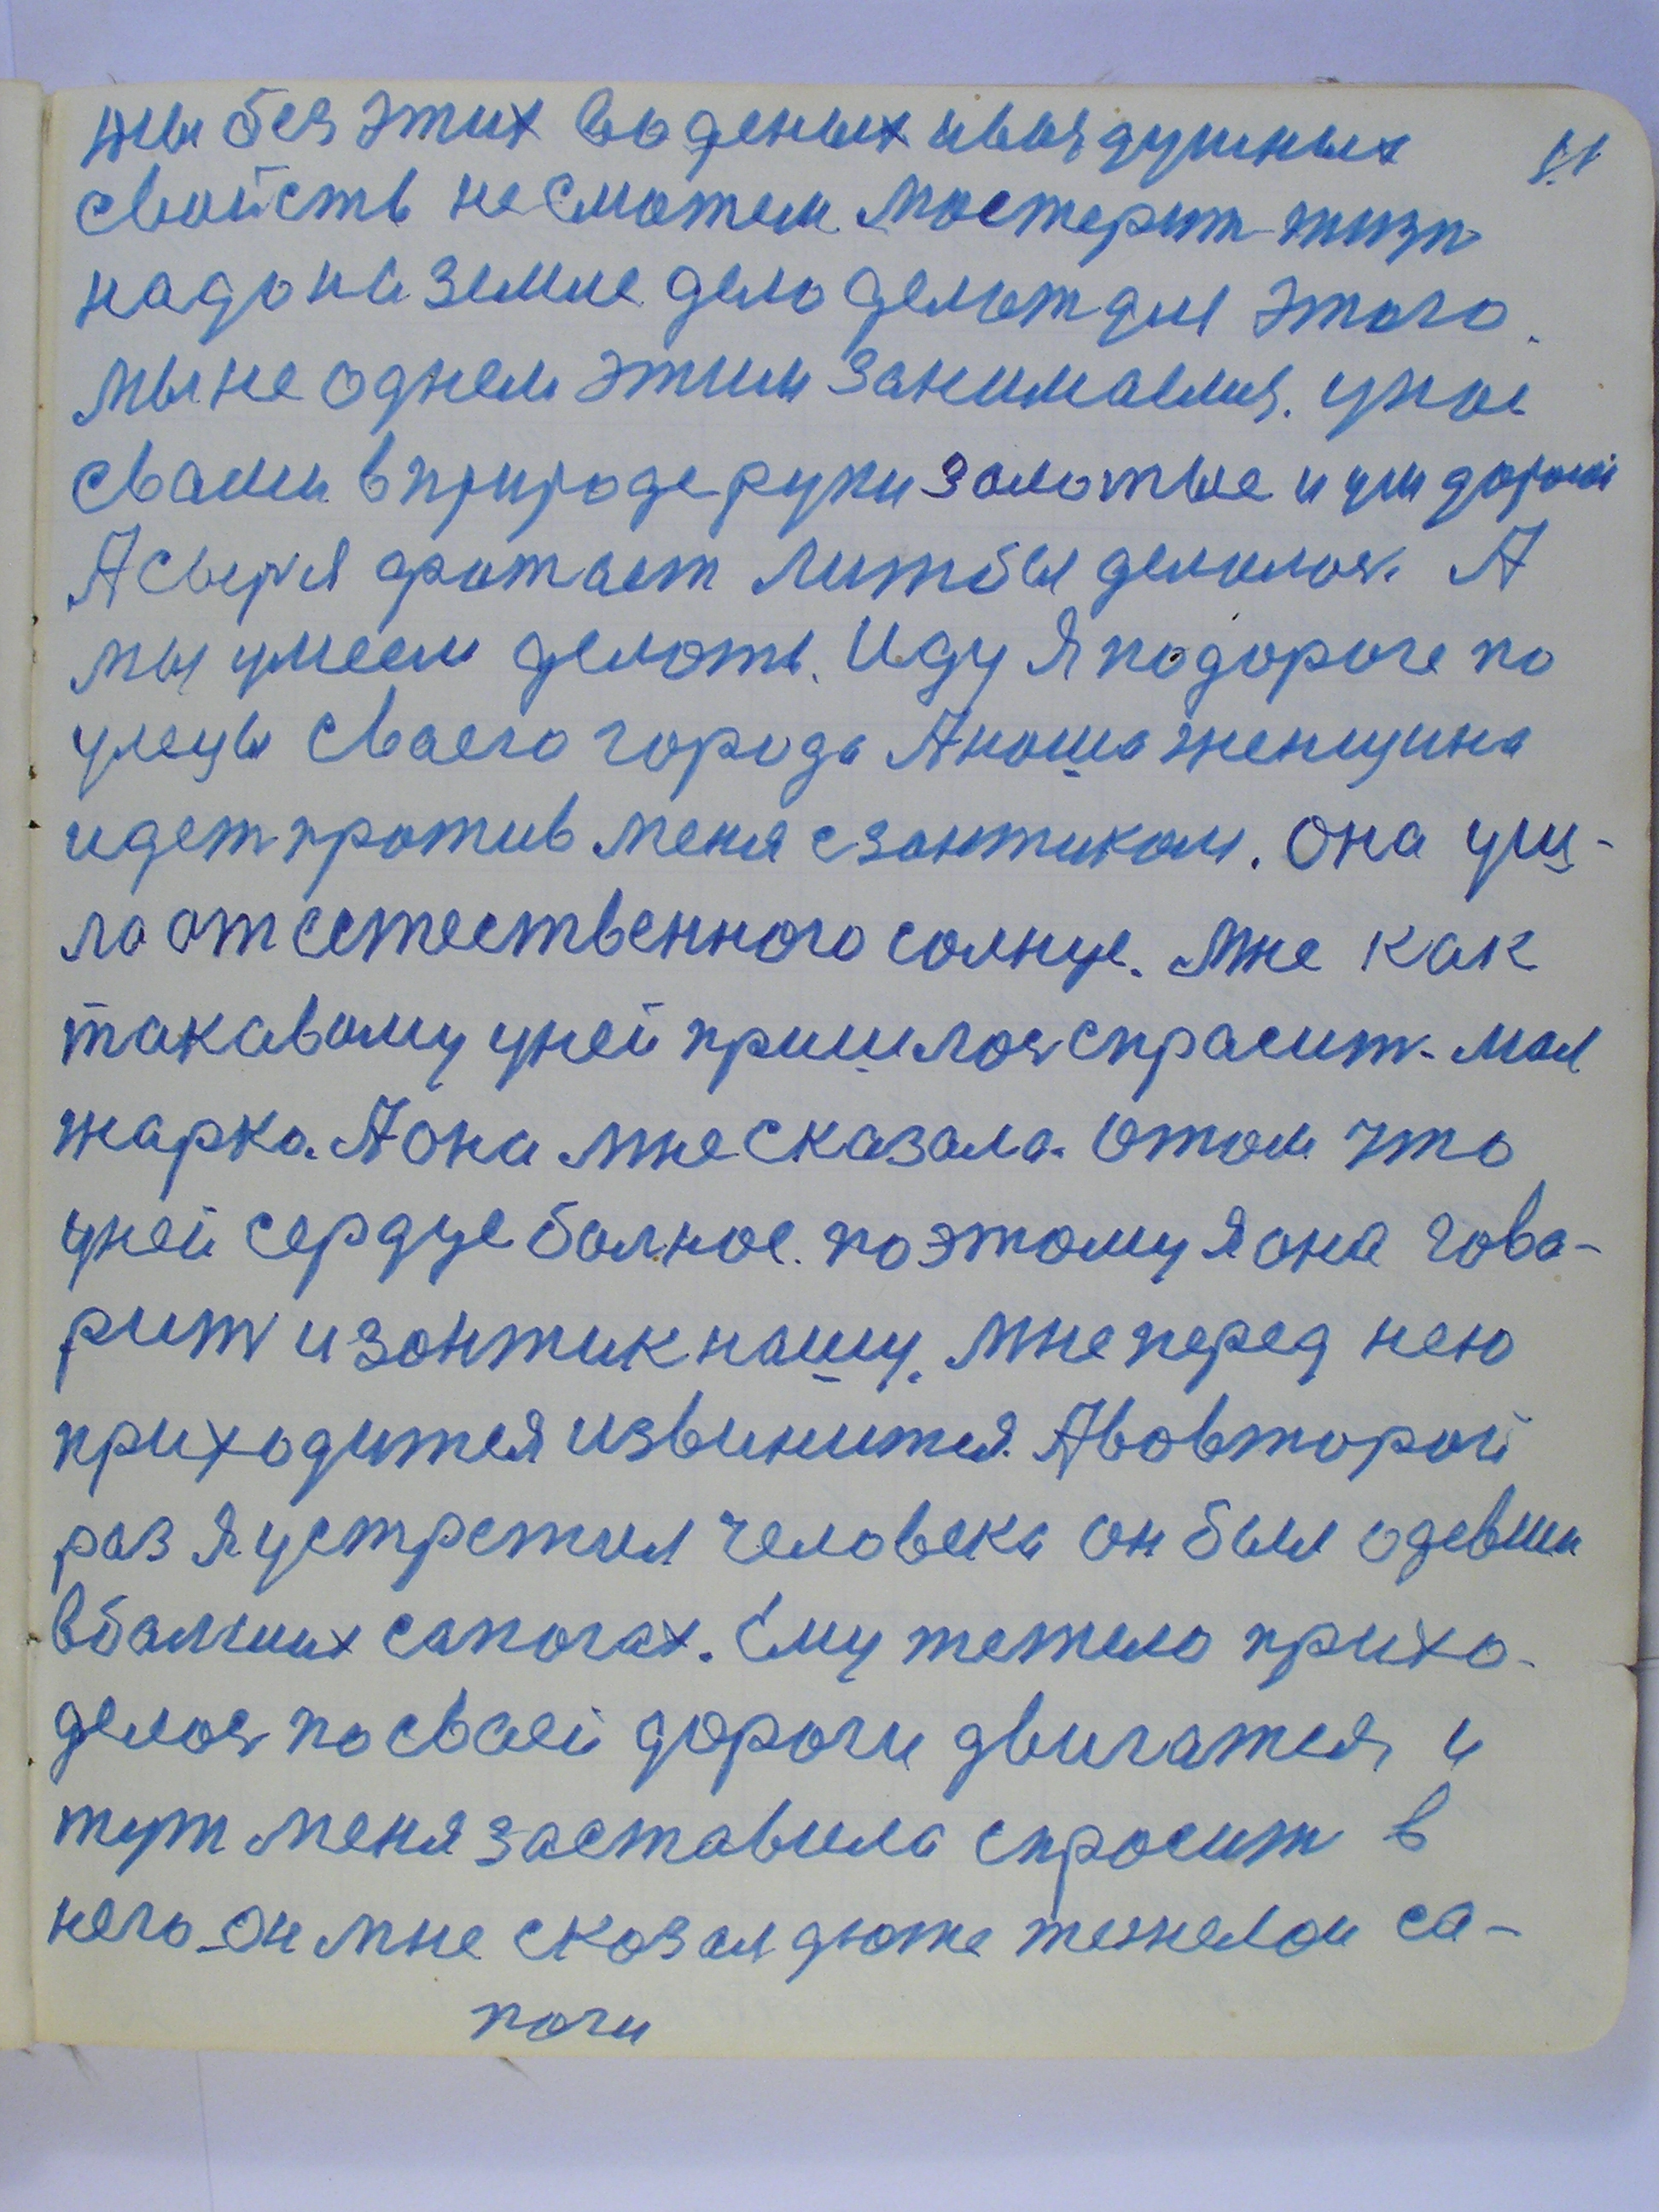 мы без этих воденых ивоздушных
свойств несможем мостерит жизн
надо на Земле дело делат для этого.
мы не однем этим занимаемся. унас
свами вприроде руки золотые и ум дорогой
А сыря хватает литбы делолос. А
мы умеем делоть. Иду я подороге по
улецы сваего города А наша женщина
идет против меня с зонтиком. Она ушла
ла от естественного солнце. Мне как
таковому уней пришлось спрасит. мол
жарко. А она мне сказала. отом что
уней сердце болное. поэтому я она гова-
рит и зонтик нашу. Мне перед нею
приходится извинится. А вовторой
раз я устретил человека он был одевши
вбалших сапогах. Ему тежело прихо-
делос по сваей дороги двигатся, и
тут меня заставило спросит в
него. Он мне сказал дюже тежелои са-
поги